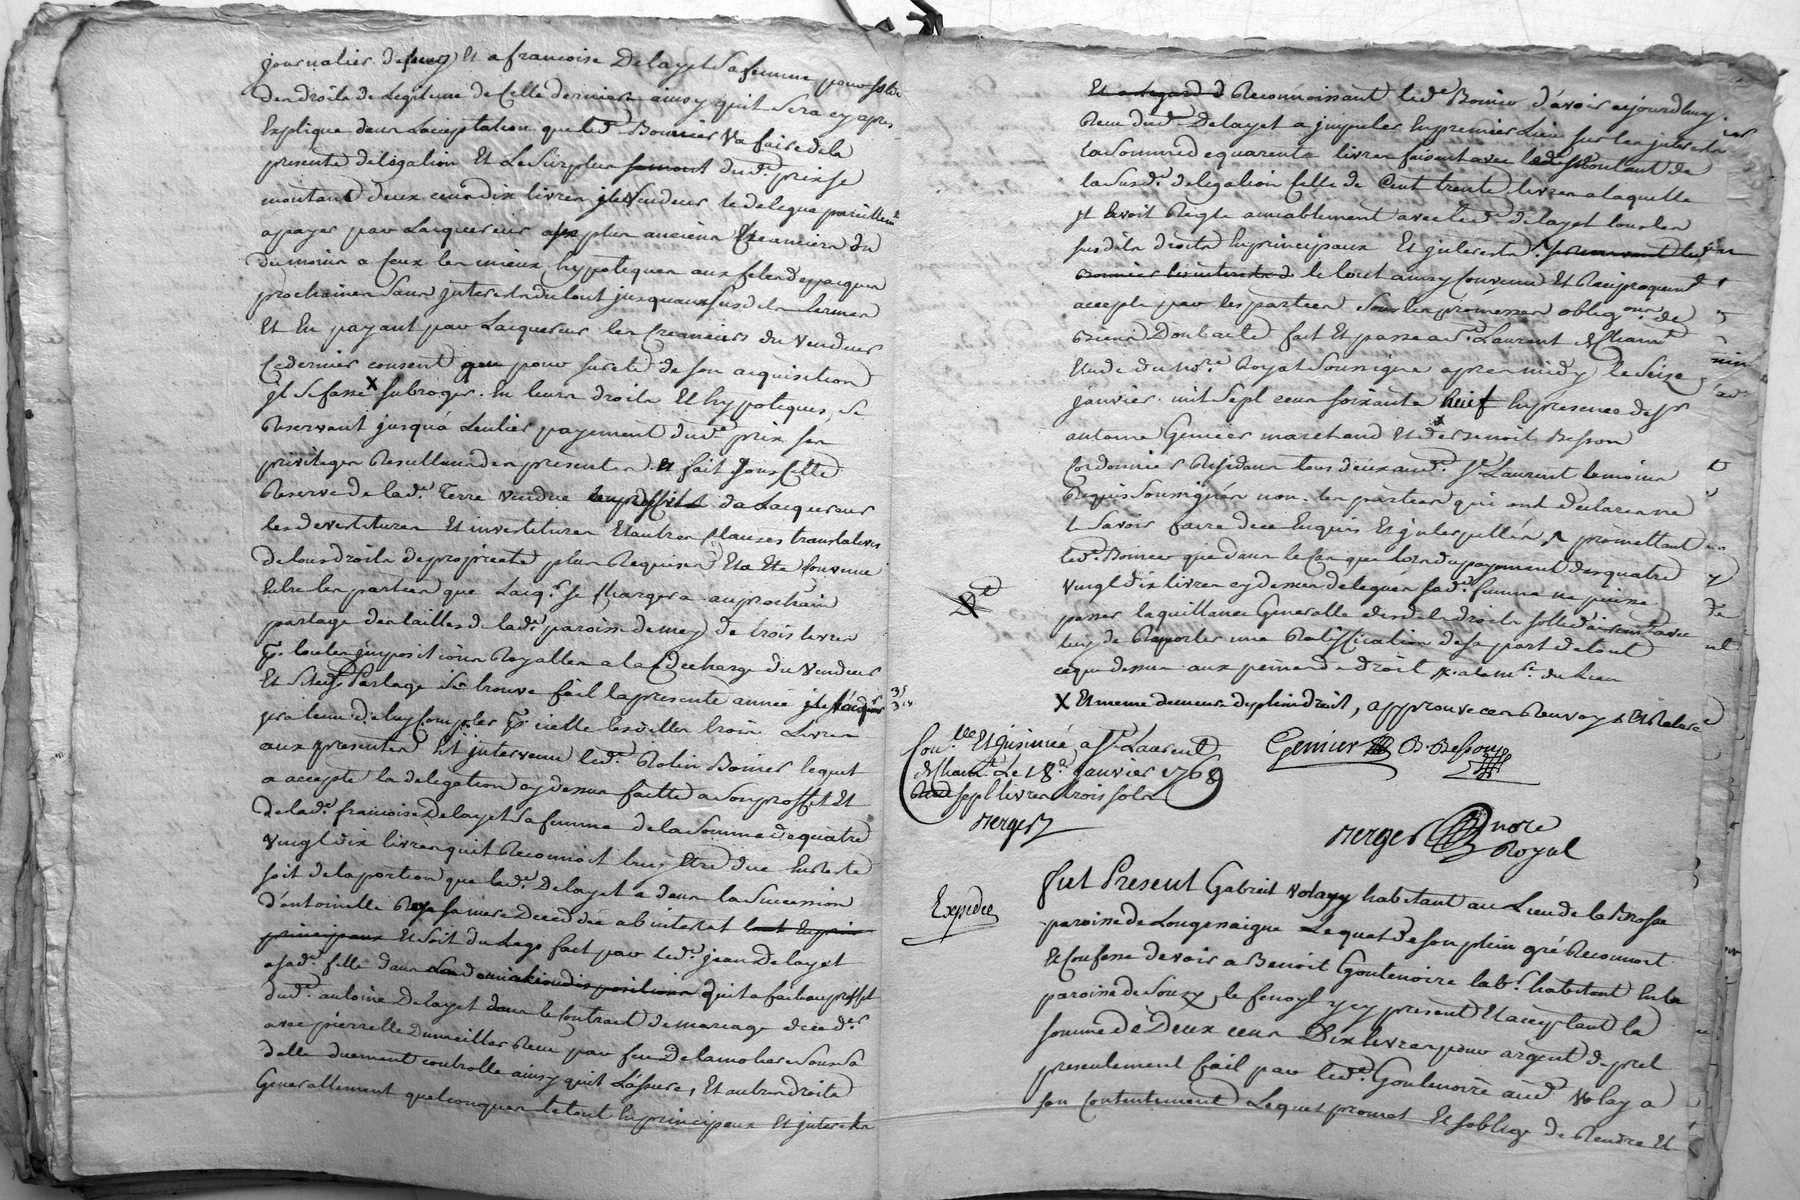 journalier de mey Et a francoise Delayet Sa femme pour solde
des droits de Legitime de Cette derniere ainsy quil Sera cy apres
Explique dans L'acceptation que led. Bonnier Va faire de la
presente délégation Et Le Surplus dud. prix se
montant deux cens dix livres le Vendeur le delegue pareillemt
a payer par L'acquereur aux plus anciens Creanciers ou
du moins a Ceux les mieux hypotequés aux fetes de paques
prochaines Sans jnterests du tout jusquaux susdits termes
Et En payant par L'acquereur les Creanciers du Vendeur
Ce dernier consent que pour sureté de son acquisition
jl se fasse X subroger En leurs droits Et hypoteques, se
Reservant jusqu'a L'entier payement dud. prix ses
privileges Resultans des presentes Et fait Sous Cette
Reserve de lad. Terre vendue au proffit de Lacquereur
les devestitures Et investitures Et autres Clauses translatives
de tous droits de propriete plus Requises Et a Eté Convenu
Entre les parties que L'acqr. se Chargera au prochain
partage des tailles de lad. paroisse de mey de trois livres
pr. toutes jmpositions Royalles a la décharge du Vendeur
Et si led. Partage Se trouve fait la presente année l'acqr.
sera tenu de luy Compter pr. icelle lesdittes trois Livres
aux presentes Est jntervenu led. Robin Bonier lequel
a accepté la delegation cy dessus faitte a son proffit Et
de lad. francoise Delayet Sa femme de la Somme de quatre
vingt dix livres quil Reconnoit luy Etre due En Reste
soit de la portion que lad. Delayet a dans la Succession
d'antoinette Sa mere Decedée ab intestat tant En prin
principaux Et Soit du Legs fait par led. jean Delayet
a sad. fille dans La donation disposition quil a fait au proffit
dud. antoine Delayet dans le Contrat de mariage
avec pierrette Dumeillier Recu par feu Delamoliere Sous Sa
datte duement controllé ainsy quil L'assure, Et autres droits
Generallement quelconques le tout En principaux Et jnterests
Reconnoissant led. Bonier d'avoir aujourdhuy
Recu dud. Delayet a jmputer En premier Lieu sur les jnterests
la Somme de quarente livres faisant avec le montant de
la Susd. delegation Celle de Cent trente livres a laquelle
jl avoit Reglé amiablement avec led. delayet tous les
susdits droits En principaux Et jnterests
le tout ainsy Convenu Et Reciproquemt.
accepté par les parties Sous les promesses obligons. de
Biens Dont acte fait Et passé a St. Laurent de Chamt.
Etude du nore. Royal Soussigné apres midy le Seize
janvier mil Sept cens soixante neuf En presence de sr.
antoine Genier marchand Et de sr Benoit Besson
Cordonnier Residans tous deux aud. St. Laurent temoins
Requis Soussignés non les parties qui ont declaré ne
Savoir faire de ce Enquis Et jnterpellés promettant
led. Bonier que dans le Cas que Lors du payement des quatre
vingt dix livres cy dessus deleguées sad. femme ne puisse
passer la quittance Generalle desdits droits
luy de Raporter une Ratiffication de sa part de tout
ce que dessus aux peines de droit
X Et meme demeure de plein droit, approuvé ces Renvoys
Con.lee Et jnsinué a St. Laurent
de Chamt. Le 18e. janvier 1769
Recu sept livres trois sols
Merger
Genier B. Besson
Merger nore
Royal
Expedié
Fut Present Gabriel Volay habitant au Lieu de la Brosse
paroisse de Longesaigne Lequel de son plein gré Reconnoit
Et Confesse devoir a Benoit Goutenoire labr. habitant En la
paroisse de Souzy le fenoyl ycy present Et acceptant la
somme de Deux cens Dix livres pour argent de pret
presentement fait par led. Goutenoire aud. Volay a
son Contentement Lequel promet Et s'oblige de Rendre Et